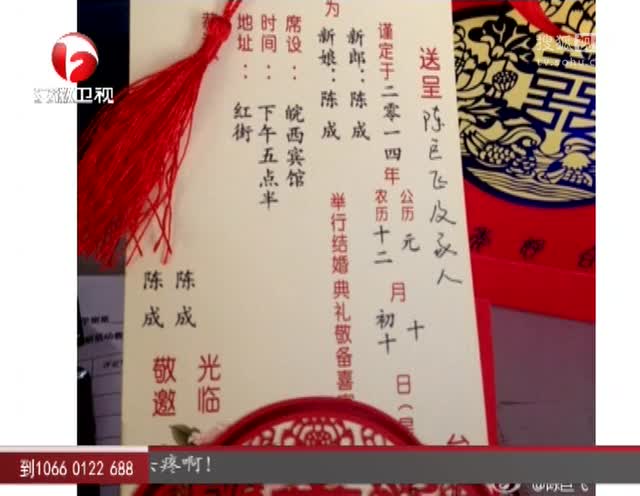 安徽卫视
搜狐视
tv.sohu.c
送呈 陈巨飞及家人
谨定于二零一四年
公历 元 月 十 日
农历 十二 初十
为
新郎：陈 成
新娘：陈 成
举行结婚典礼敬备喜宴
席设：皖西宾馆
时间：下午五点半
地址：红街
陈成
陈成
光临
敬邀
台
到1066 0122 688
疼啊！